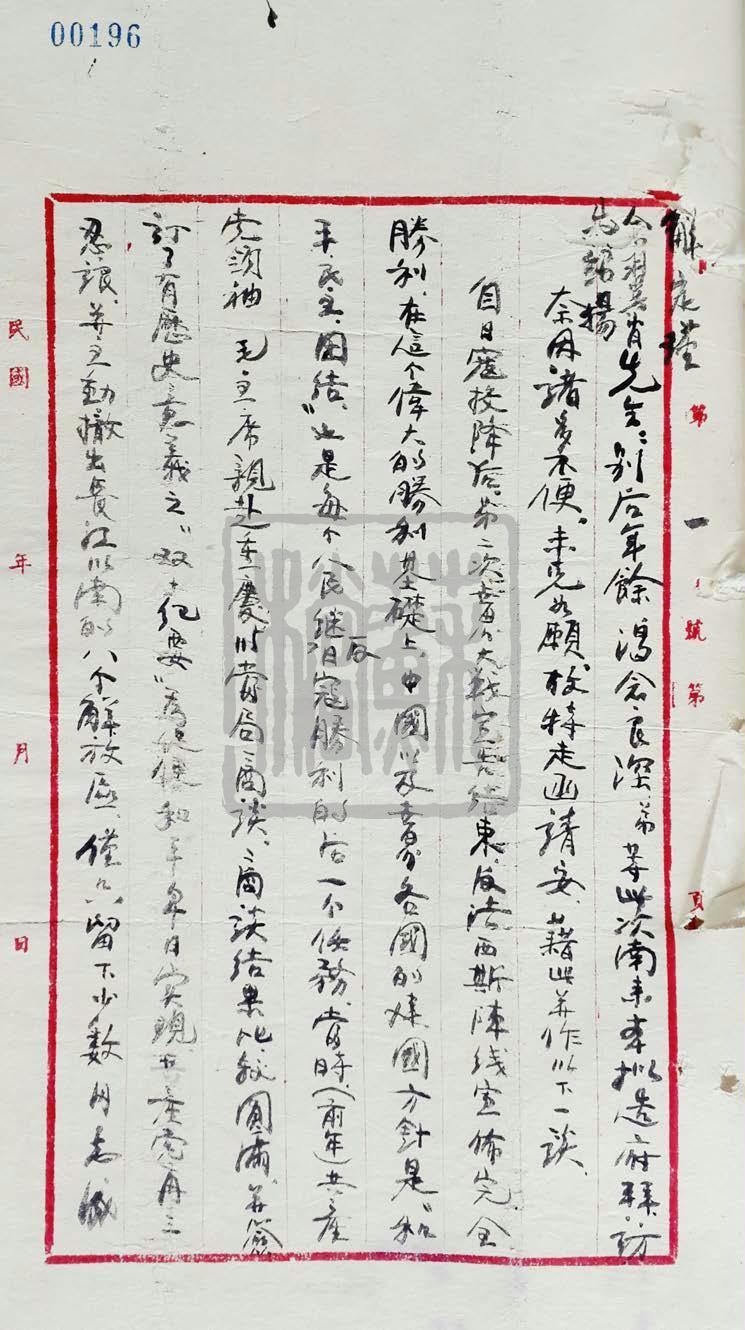 00196
第一號第頁
先生：別后年餘渴念良深，弟等此次南来本拟造府拜訪
奈因諸多不便，未克如願，校特走函請安，藉此并作以下一談、
自日寇投降后，第二次世界大戰宣告结束，反法西斯陣线宣佈完全
勝利，在這个偉大的勝利基礎上，中國以及世界各國的建國方針是“和
平、民主、團結、”也是每个人民继日寇勝利的后一个任務，當時（前年）共產
党領袖 毛主席親赴重慶以當局商谈，商談结果比較圓满，并簽
訂了有歷史意義之“双十纪要”為促使和平早日实現，共產党再三
忍讓，并主動撤出長江以南的八个解放區，僅只留下少数同志
民國 年 月 日